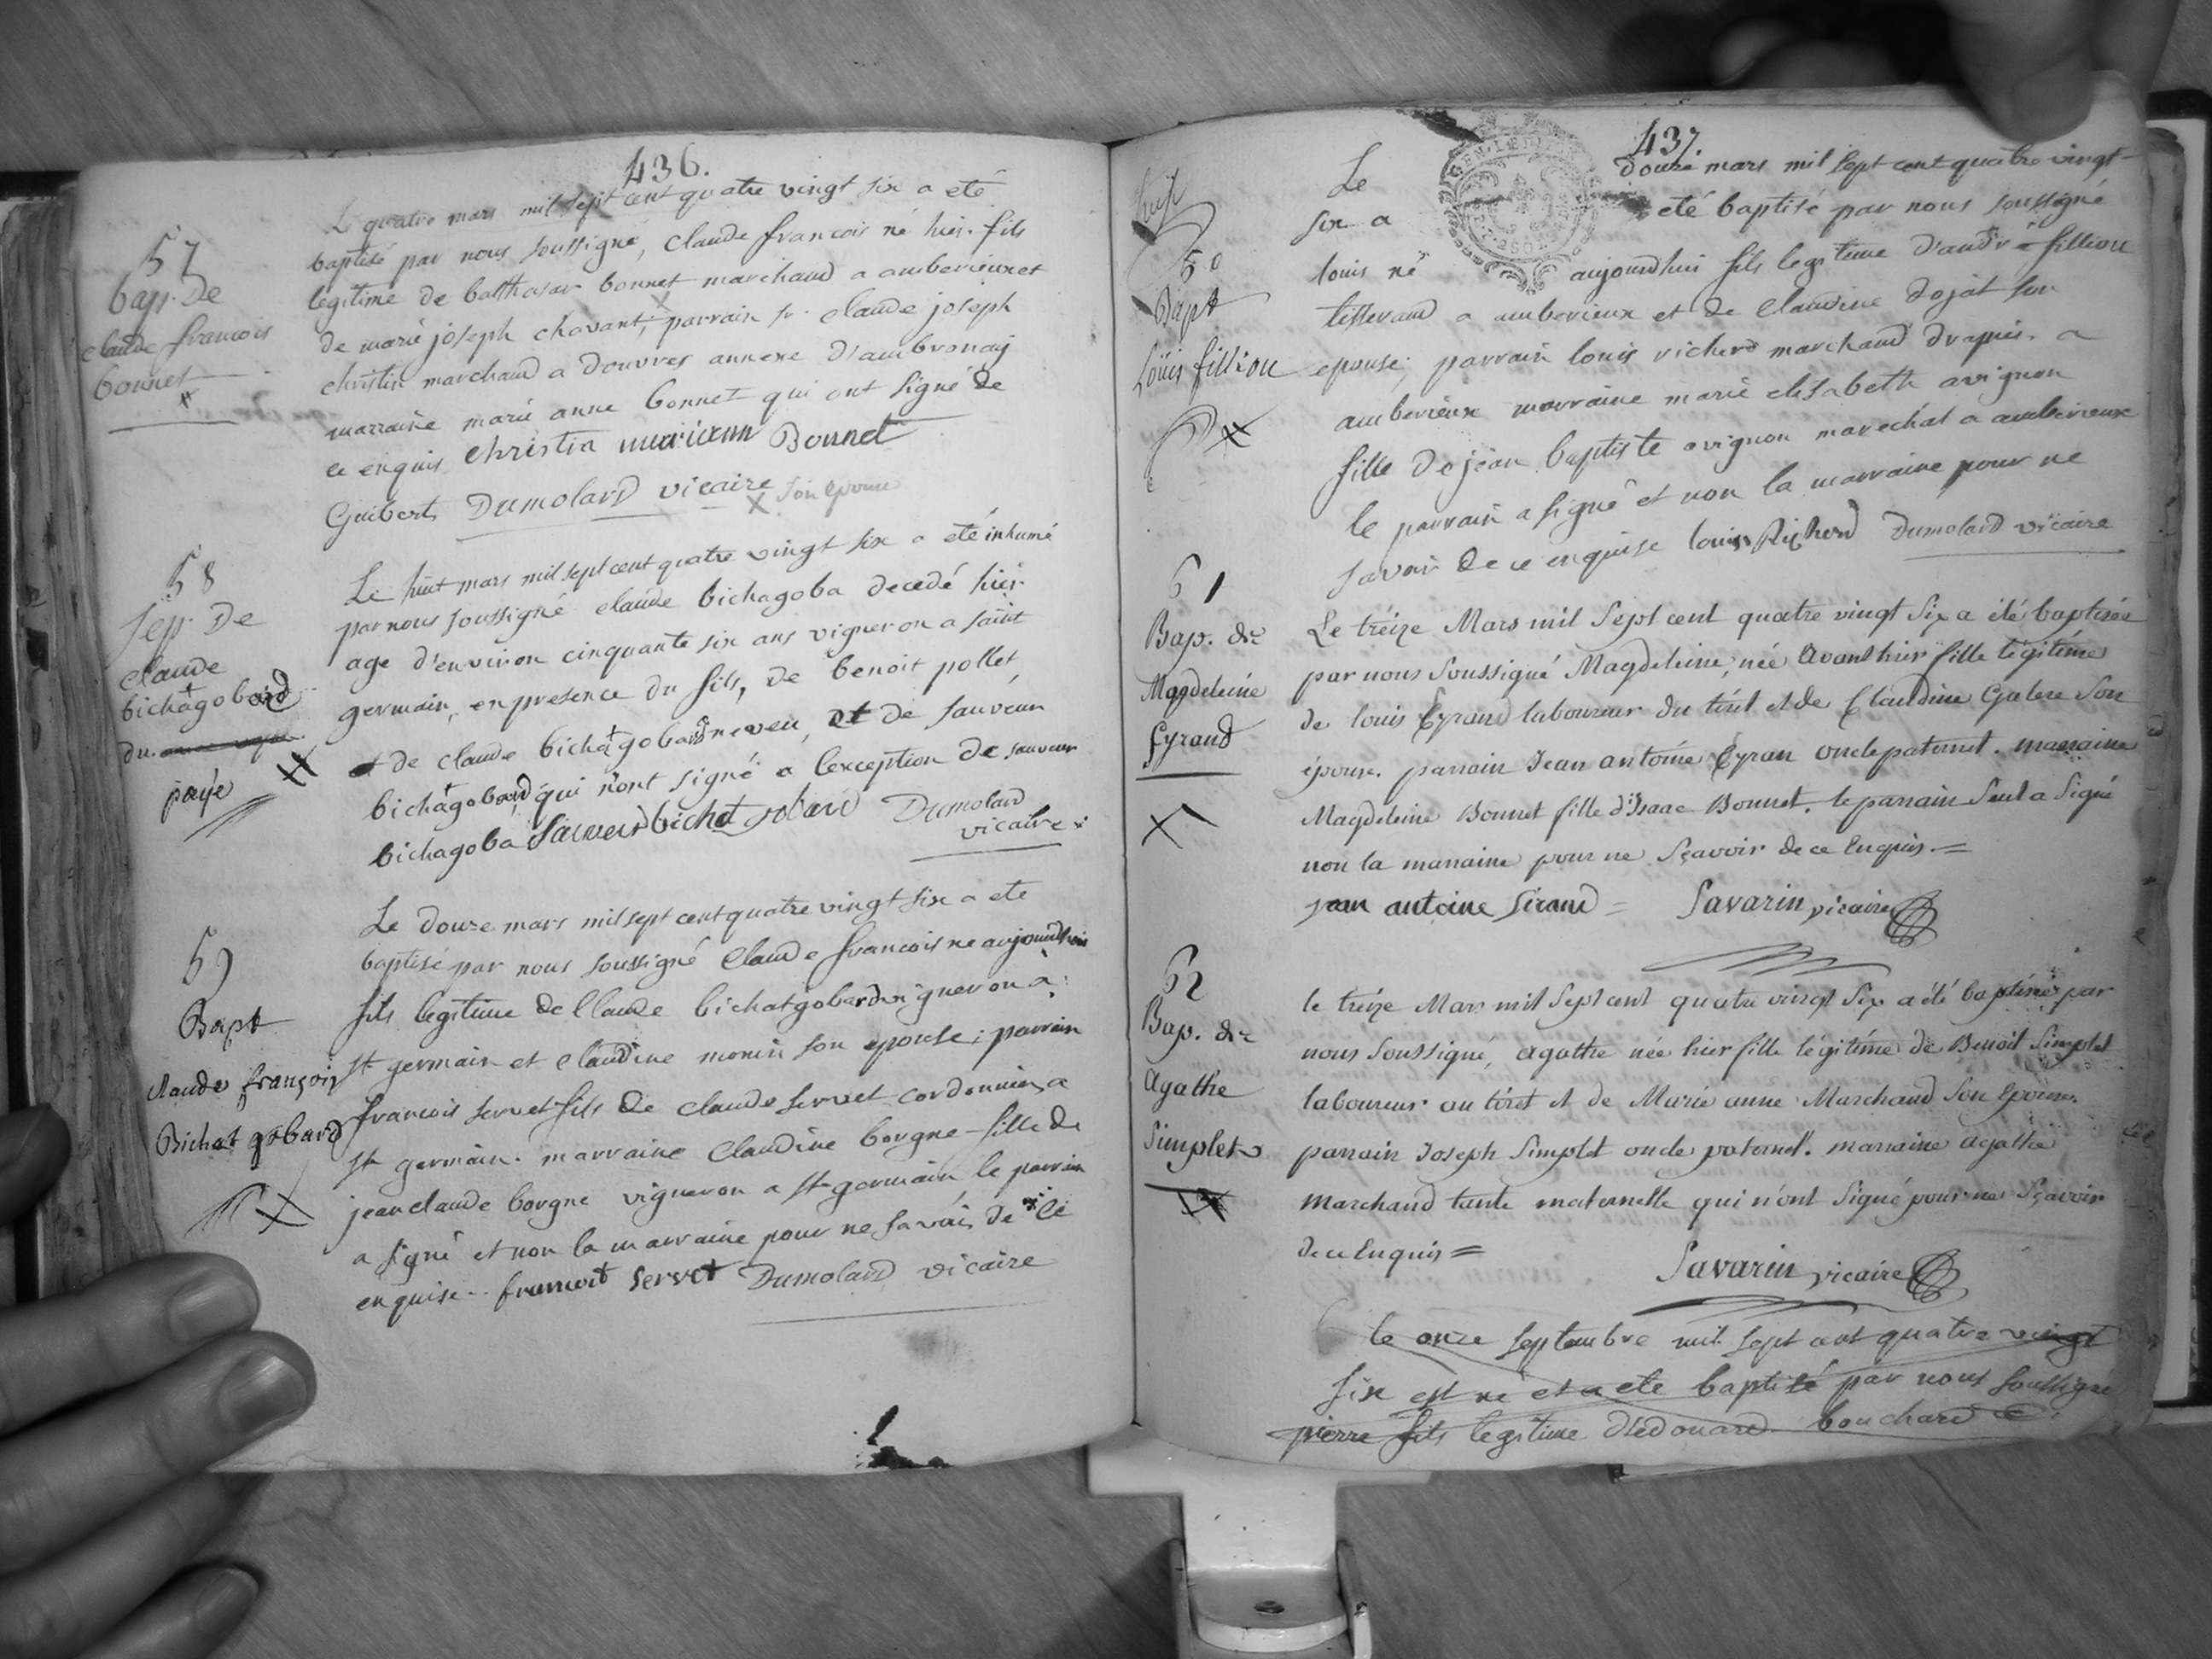 436.
57
bap. de
claude francois
bonnet
Le quatre mars mil sept cent quatre vingt six a eté
baptisé par nous soussigné, Claude francois né hier fils
legitime de balthasar bonnet marchand a amberieux et
de marie joseph chavant; parrain sr. Claude joseph
christin marchand a douvres annexe d'ambronay
marraine marie anne bonnet qui ont signé de
ce enquis christin mariann Bonnet
Guibert Dumolard vicaire
x son epouse
58
sep. de
claude
bichatgobard
du
payé
Le huit mars mil sept cent quatre vingt six a eté inhumé
par nous soussigné claude bichagoba decedé hier
age d'environ cinquante six ans vigneron a saint
germain, en presence du fils, de benoit pollet
et de claude bichatgobard neveu, et de sauveur
bichatgobard qui n'ont signé a l'exception de sauveur
bichagoba Sauveur bichat gobard Dumolard
vicaire
59
Bapt
claude françois
Bichat gobard
Le douze mars mil sept cent quatre vingt six a ete
baptisé par nous soussigné Claude francois ne aujourdhui
fils legitime de Claude bichatgobard vigneron a
st germain et claudine monin son epouse; parrain
francois servet fils de claude servet cordonnier a
st germain. marraine Claudine borgne fille de
jean claude borgne vigneron a st germain le parrain
a signé et non la marraine pour ne savoir de ce
enquise. francoit servet Dumolard vicaire
437.
huit
60
Bapt
Loüis fillion
Le douze mars mil sept cent quatre vingt
six a eté baptisé par nous soussigné
louis né aujourdhui fils legitime d'andré fillion
tisserand a amberieux et de Claudine dojat son
epouse; parrain louis richerd marchand drapier a
amberieux marraine marie elisabeth avignon
fille de jean baptiste avignon marechal a amberieux
le parrain a signé et non la marraine pour ne
savoir de ce enquise louis Richerd Dumolard vicaire
61
Bap. de
Magdeleine
Eyraud
Le tréize Mars mil Sept cent quatre vingt Six a été baptisée
par nous Soussigné Magdeleine, née Avant hier fille légitime
de louis Eyraud laboureur du tiret et de Claudine Galere Son
épouse. parrain Jean antoine Eyran oncle paternel. marraine
Magdeleine Bonnet fille d'Isaac Bonnet. le parrain Seul a Signé
non la marraine pour ne Sçavoir de ce Enquis. =
jean antoine Sirand = Savarin, vicaire
62
Bap. de
Agathe
Simplet
le treize Mars mil Sept cent quatre vingt Six a été baptisée par
nous Soussigné, agathe née hier fille légitime de Benoit Simplet
laboureur au tiret et de Marie anne Marchand Son Epouse.
parrain Joseph Simplet oncle paternel. marraine agathe
Marchand tante maternelle qui n'ont Signé pour ne Sçavoir
de ce Enquis =
Savarin, vicaire
le onze septembre mil sept cent quatre vingt
six est né et a ete baptisé par nous soussigne
pierre fils legitime d'édouard bouchard